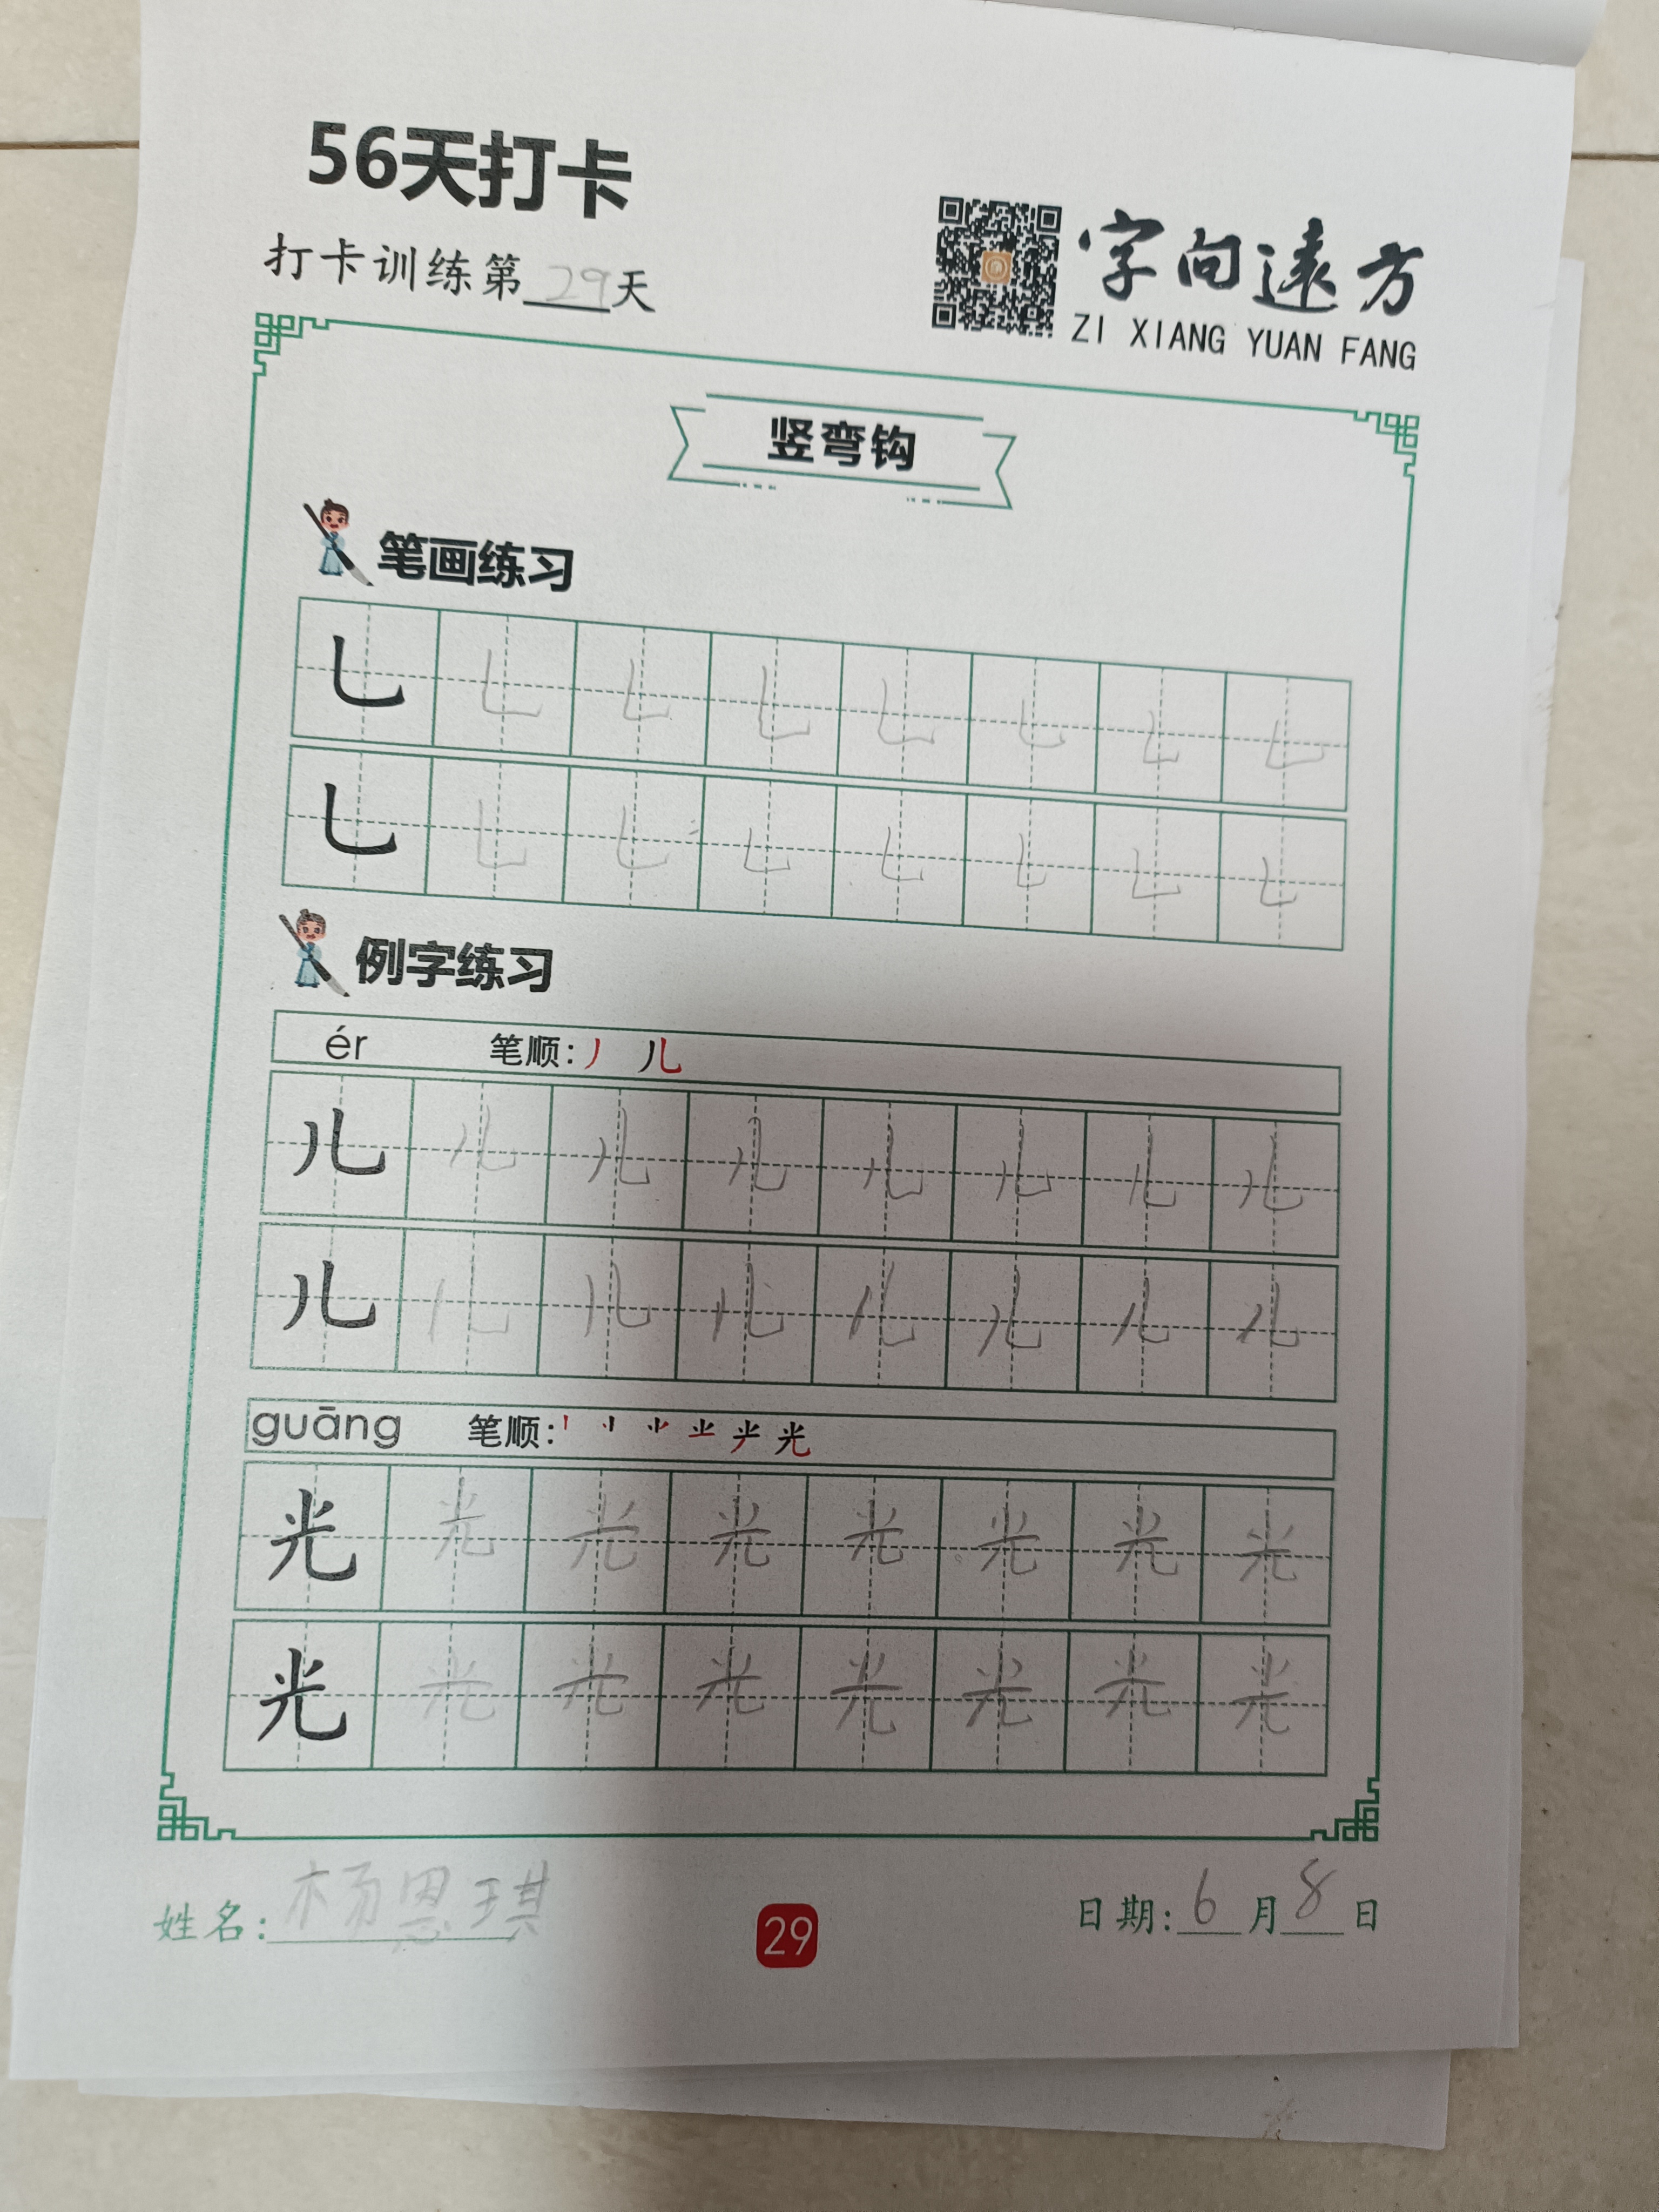 56天打卡
打卡训练第29天
字向遠方
ZI XIANG YUAN FANG
竖弯钩
笔画练习
乚 乚 乚 乚 乚 乚 乚 乚
乚 乚 乚 乚 乚 乚 乚 乚
例字练习
ér 笔顺：丿 儿
儿 儿 儿 儿 儿 儿 儿 儿
儿 儿 儿 儿 儿 儿 儿 儿
guāng 笔顺： 光
光 光 光 光 光 光 光 光
光 光 光 光 光 光 光 光
姓名：杨恩琪
29
日期：6月8日